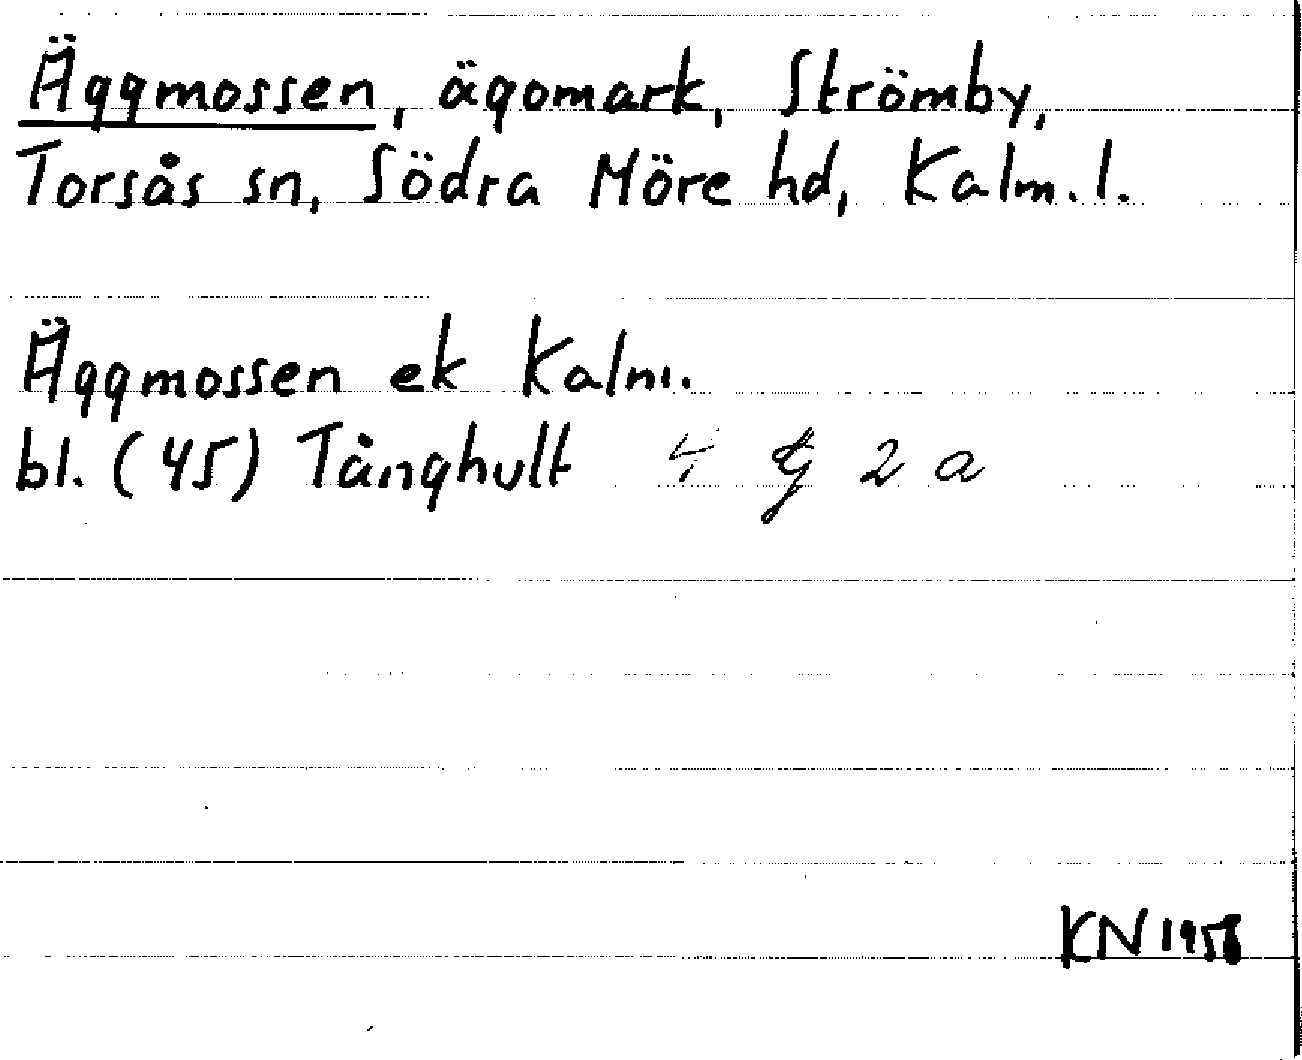 Äggmossen, ägomark, Strömby,
Torsås sn, Södra Möre hd, Kalm. l.
Äggmossen ek Kalm.
bl. (45) Tånghult 4 G 2 a
KN 1958